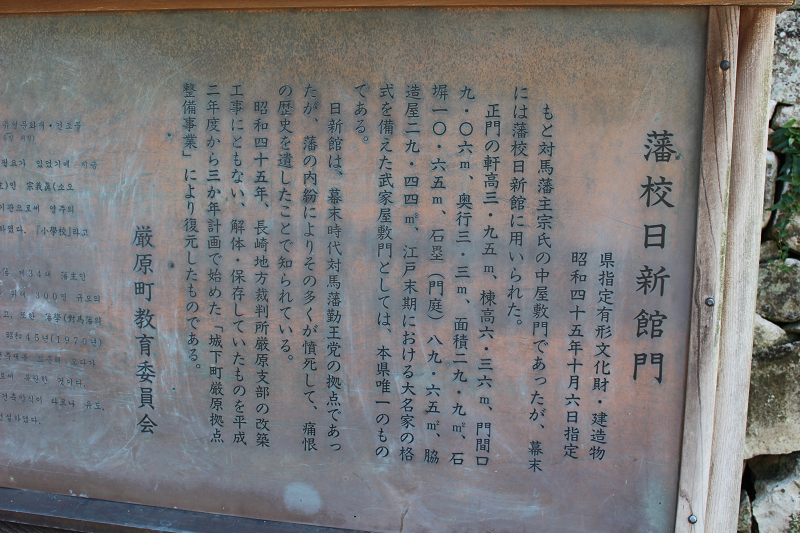 藩校日新館門
県指定有形文化財・建造物
昭和四十五年十月六日指定
もと対馬藩主宗氏の中屋敷門であったが、幕末
には藩校日新館に用いられた。
正門の軒高三・九五m、棟高六・三六m、門間口
九・〇六m、奥行三・三m、面積二九・九㎡、石
塀一〇・六五m、石塁（門庭）八九・六五㎡、脇
造屋二九・四四㎡、江戸末期における大名家の格
式を備えた武家屋敷門としては、本県唯一のもの
である。
日新館は、幕末時代対馬藩勤王党の拠点であっ
たが、藩の内紛によりその多くが憤死して、痛恨
の歴史を遺したことで知られている。
昭和四十五年、長崎地方裁判所厳原支部の改築
工事にともない、解体・保存していたものを平成
二年度から三か年計画で始めた「城下町厳原拠点
整備事業」により復元したものである。
厳原町教育委員会
宗義真(소오
『小學校』라고
제34대 藩主인
300명 규모의
昭和45년(1970)